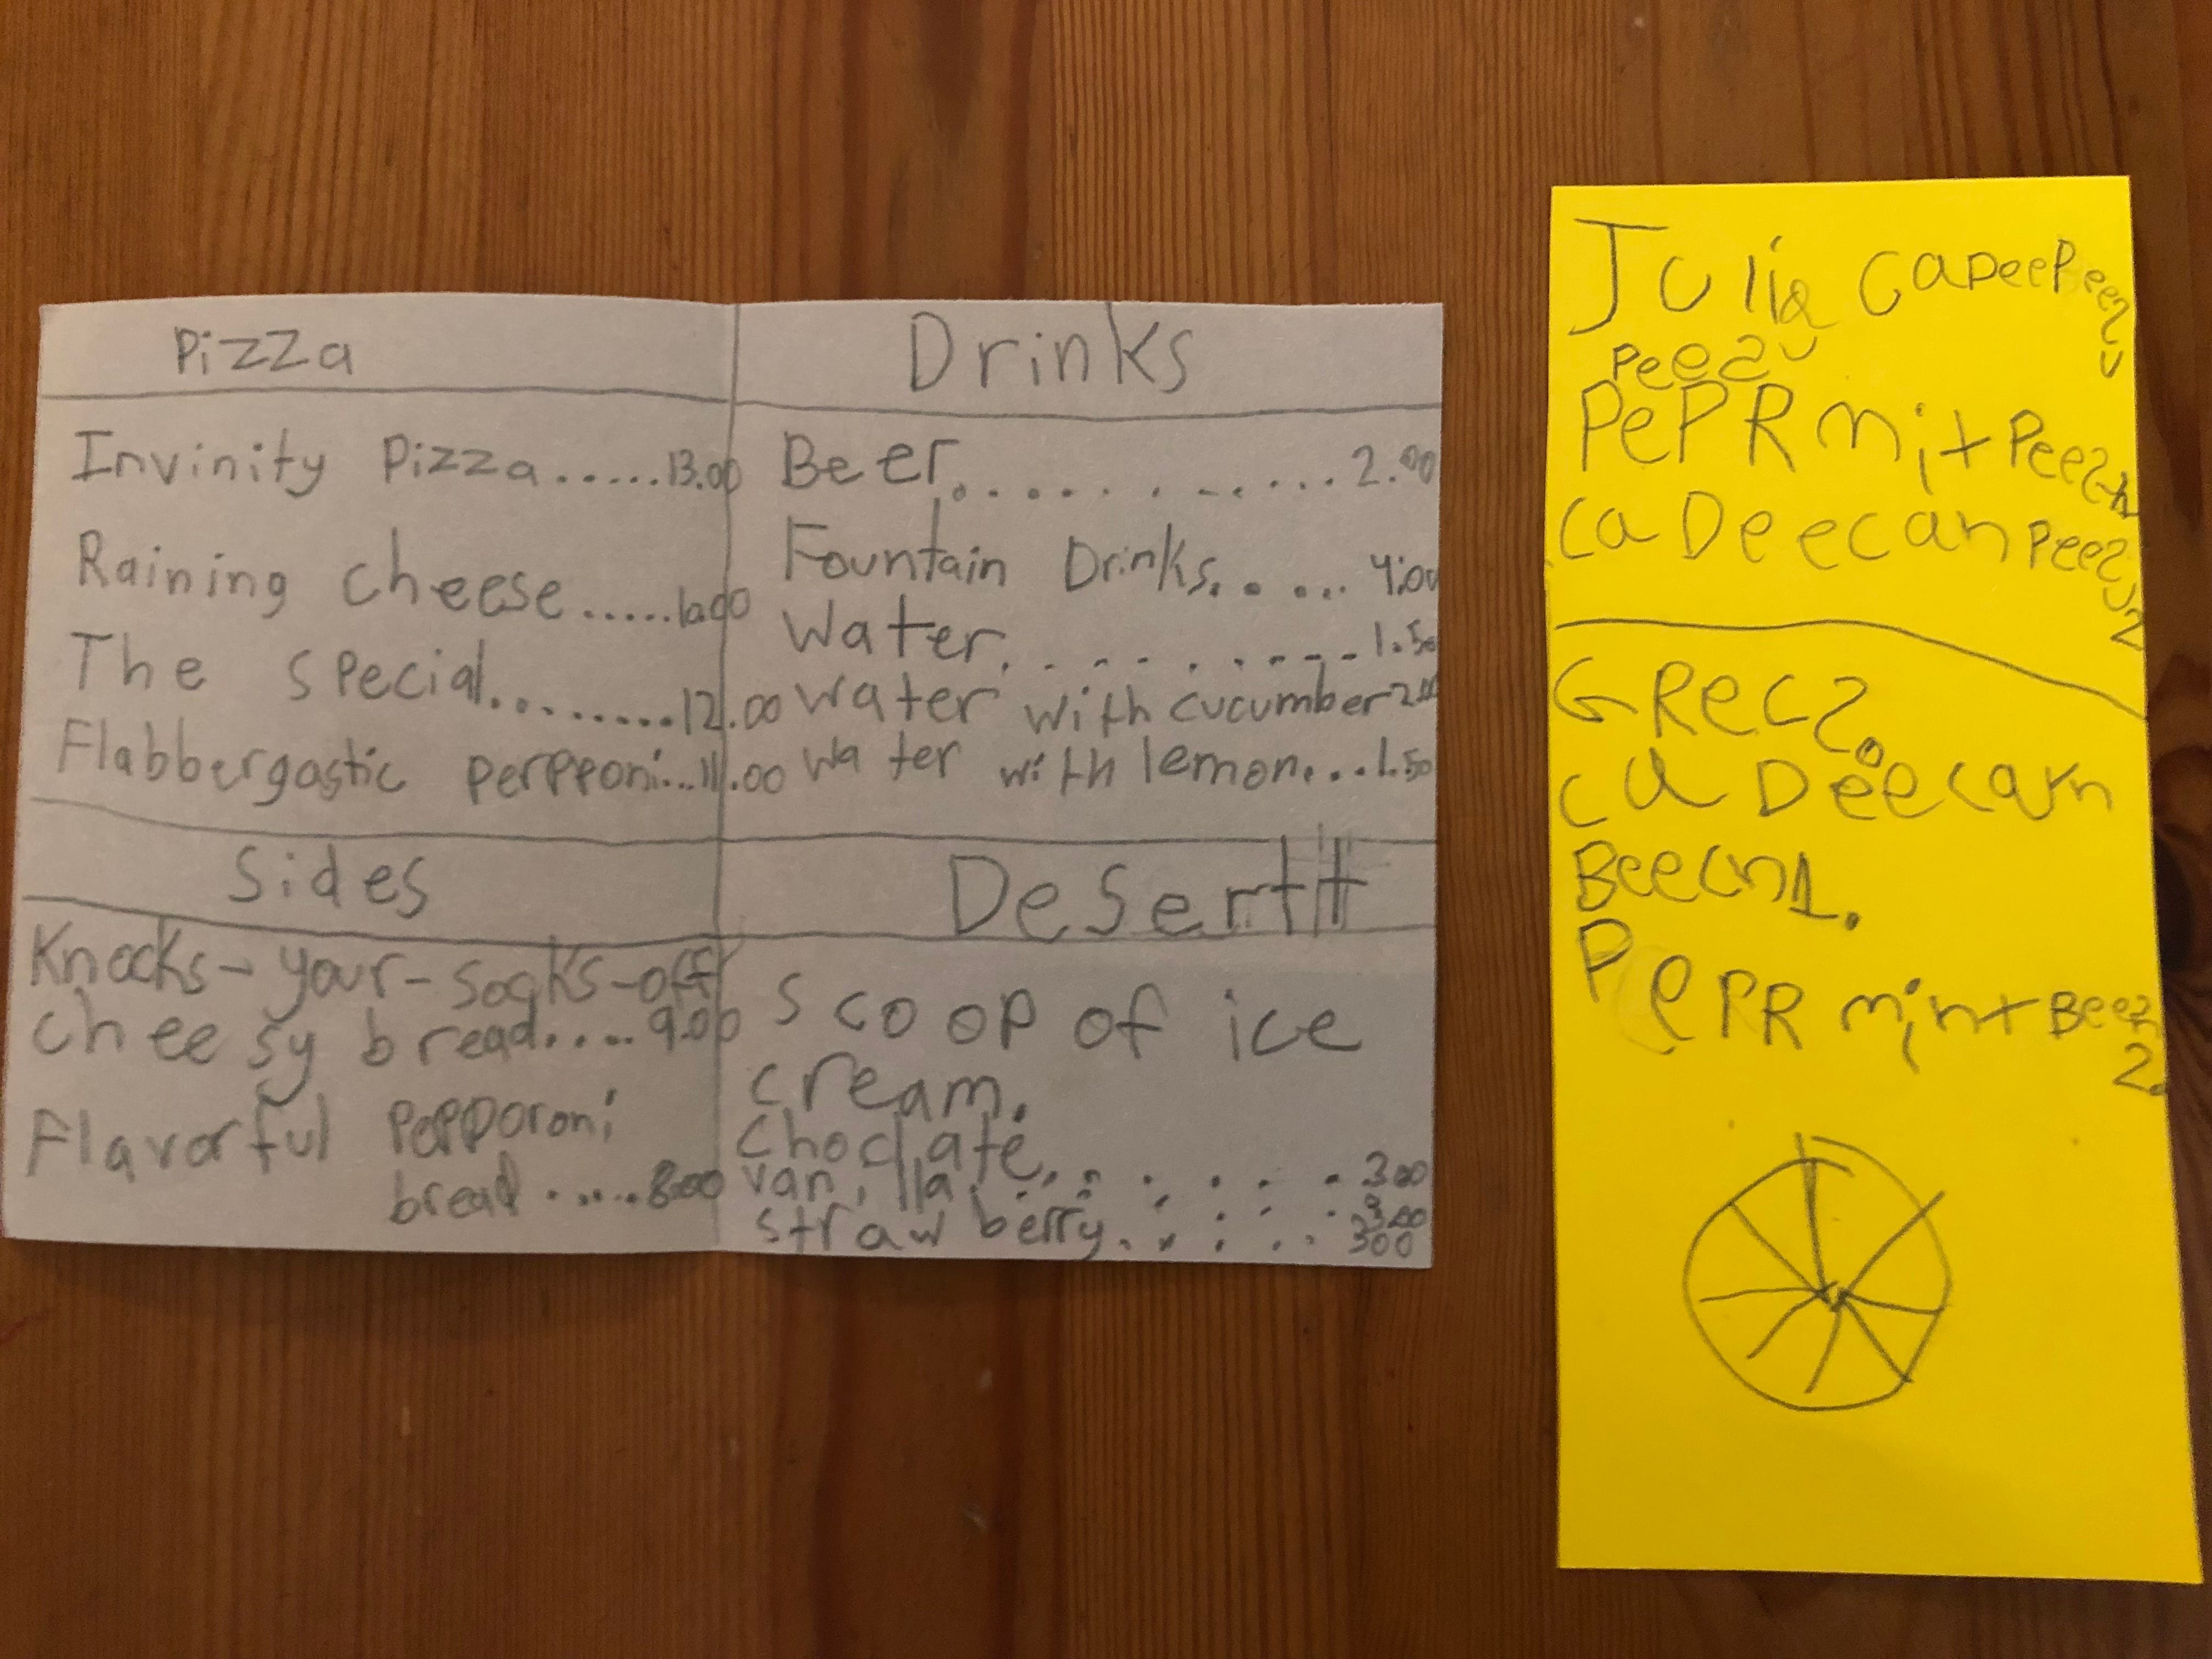 Pizza
Invinity Pizza.....13.00
Raining cheese.....10.00
The special.........12.00
Flabbergastic perpponi...11.00
Sides
Knocks-your-socks-off
cheesy bread....9.00
Flavorful Pepporoni
bread.....8.00
Drinks
Beer............2.00
Fountain Drinks......4.00
Water...........1.50
water with cucumber 2.00
water with lemon...1.50
Desert
scoop of ice
cream.
choclate........3.00
vanilla.......3.00
strawberry......300
Julia
PePRmit
GRecz.
Beecn1.
PePRmint Beez
2.